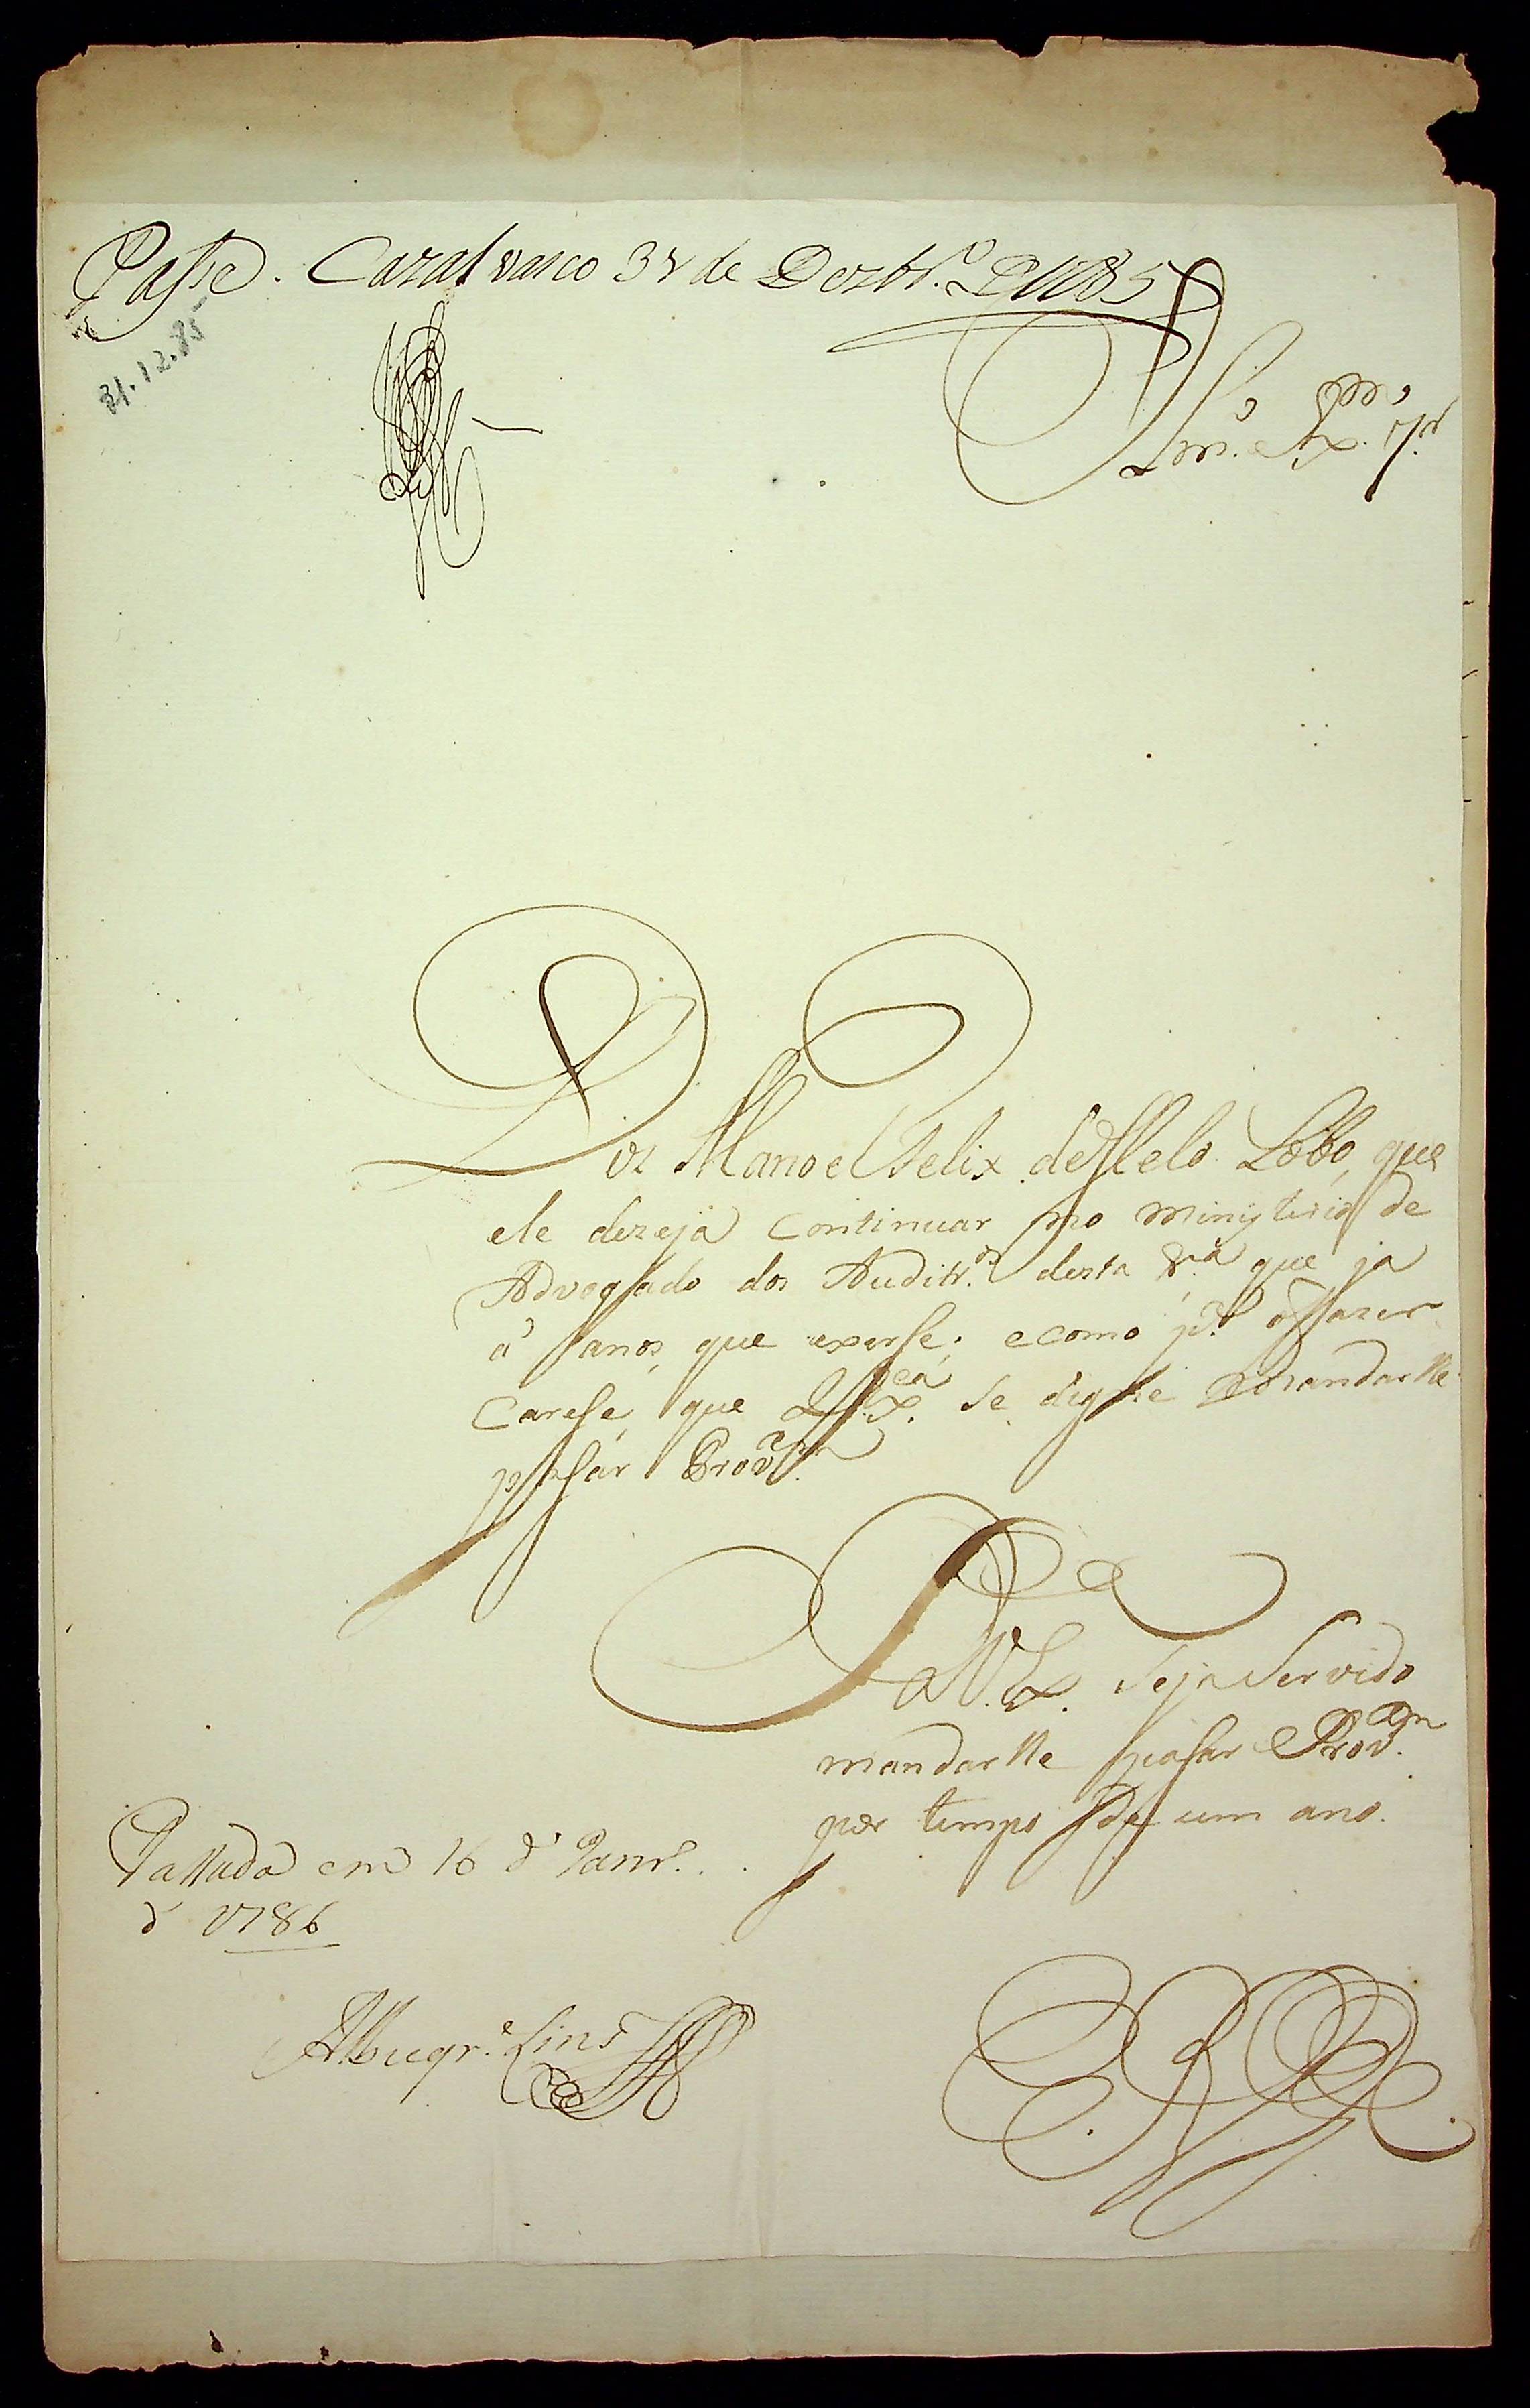 Passe. Cazal vasco 31 de Dezbr.º D 1785
31.12.85
Illmº. e Ex.mo Sr.
Diz Manoel Felix de Mello Lobo, que
ele dezeja continuar no ministerio de
Advogado dos Auditr.os desta V.ª que ja
á anos, que exerse; e como p.ª o fazer
carese, que V. Ex.cia se digne mandarlhe
pasár Prov.am
P. a V. Ex. seja servido
mandarlhe pasar Prov.am
por tempo de um ano.
Passada em 16 d' Janr.º
d 1786
Albuqr.e Lins
E. R. M.